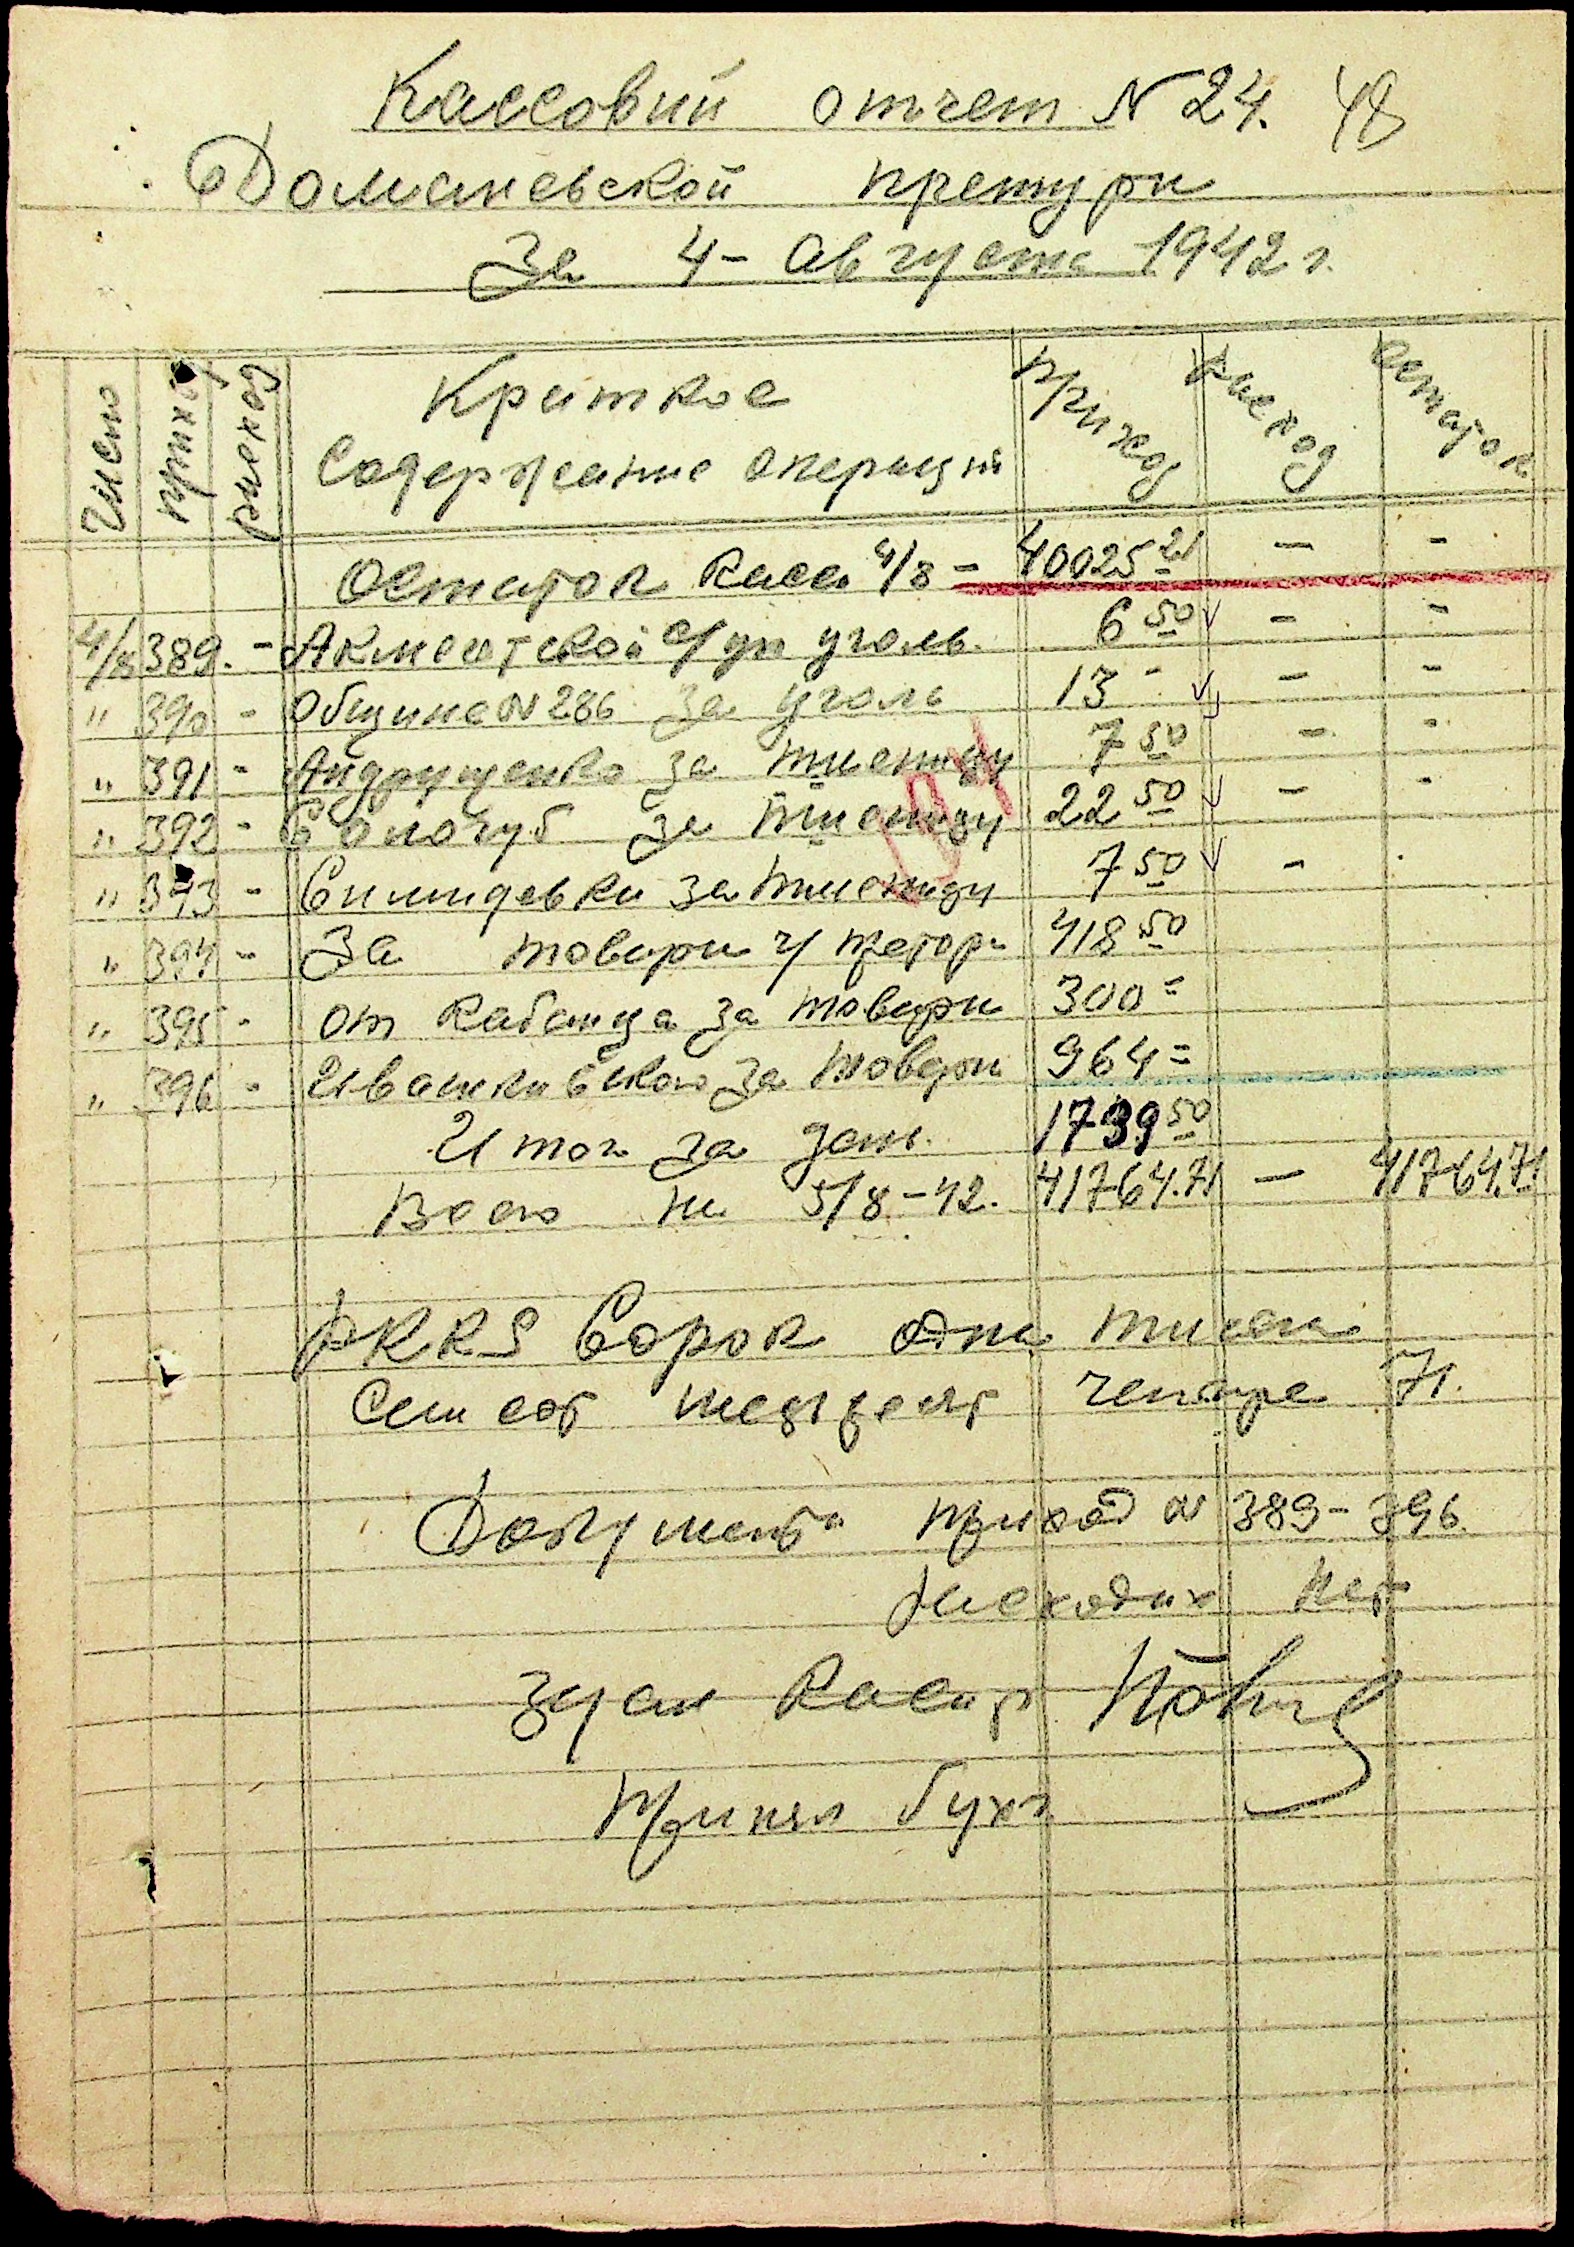 Кассовий отчет N 24. 48
Доманевской претури
За 4 - Августа 1942 г.
Число приход расход Краткое Приход Расход Остаток
Содержание операций
Остаток касса 4/8 - 40025 21 - -
4/8 389. - Акмечетской с/уп уголь. 6 50 - -
" 390 - Общине N 286 за уголь 13 - - -
" 391 - Андрущенко за пшеницу 7 50 - -
" 392 - Сологуб за пшеницу 22 50 - -
" 393 - за пшеницу 7 50 -
" 394 - За товари ч/ 418 50
" 395 - от Кабанца за товари 300 =
" 396 - за товари 964 =
Итог за день. 1739 50
Всего на 5/8 - 42. 41764.71 - 41764.71
РККS Сорок одна тисяч
Семсот шестдесят четире 71.
Документи приход N 389 - 396.
Расходних нет
Здал Касир
Принял бухг